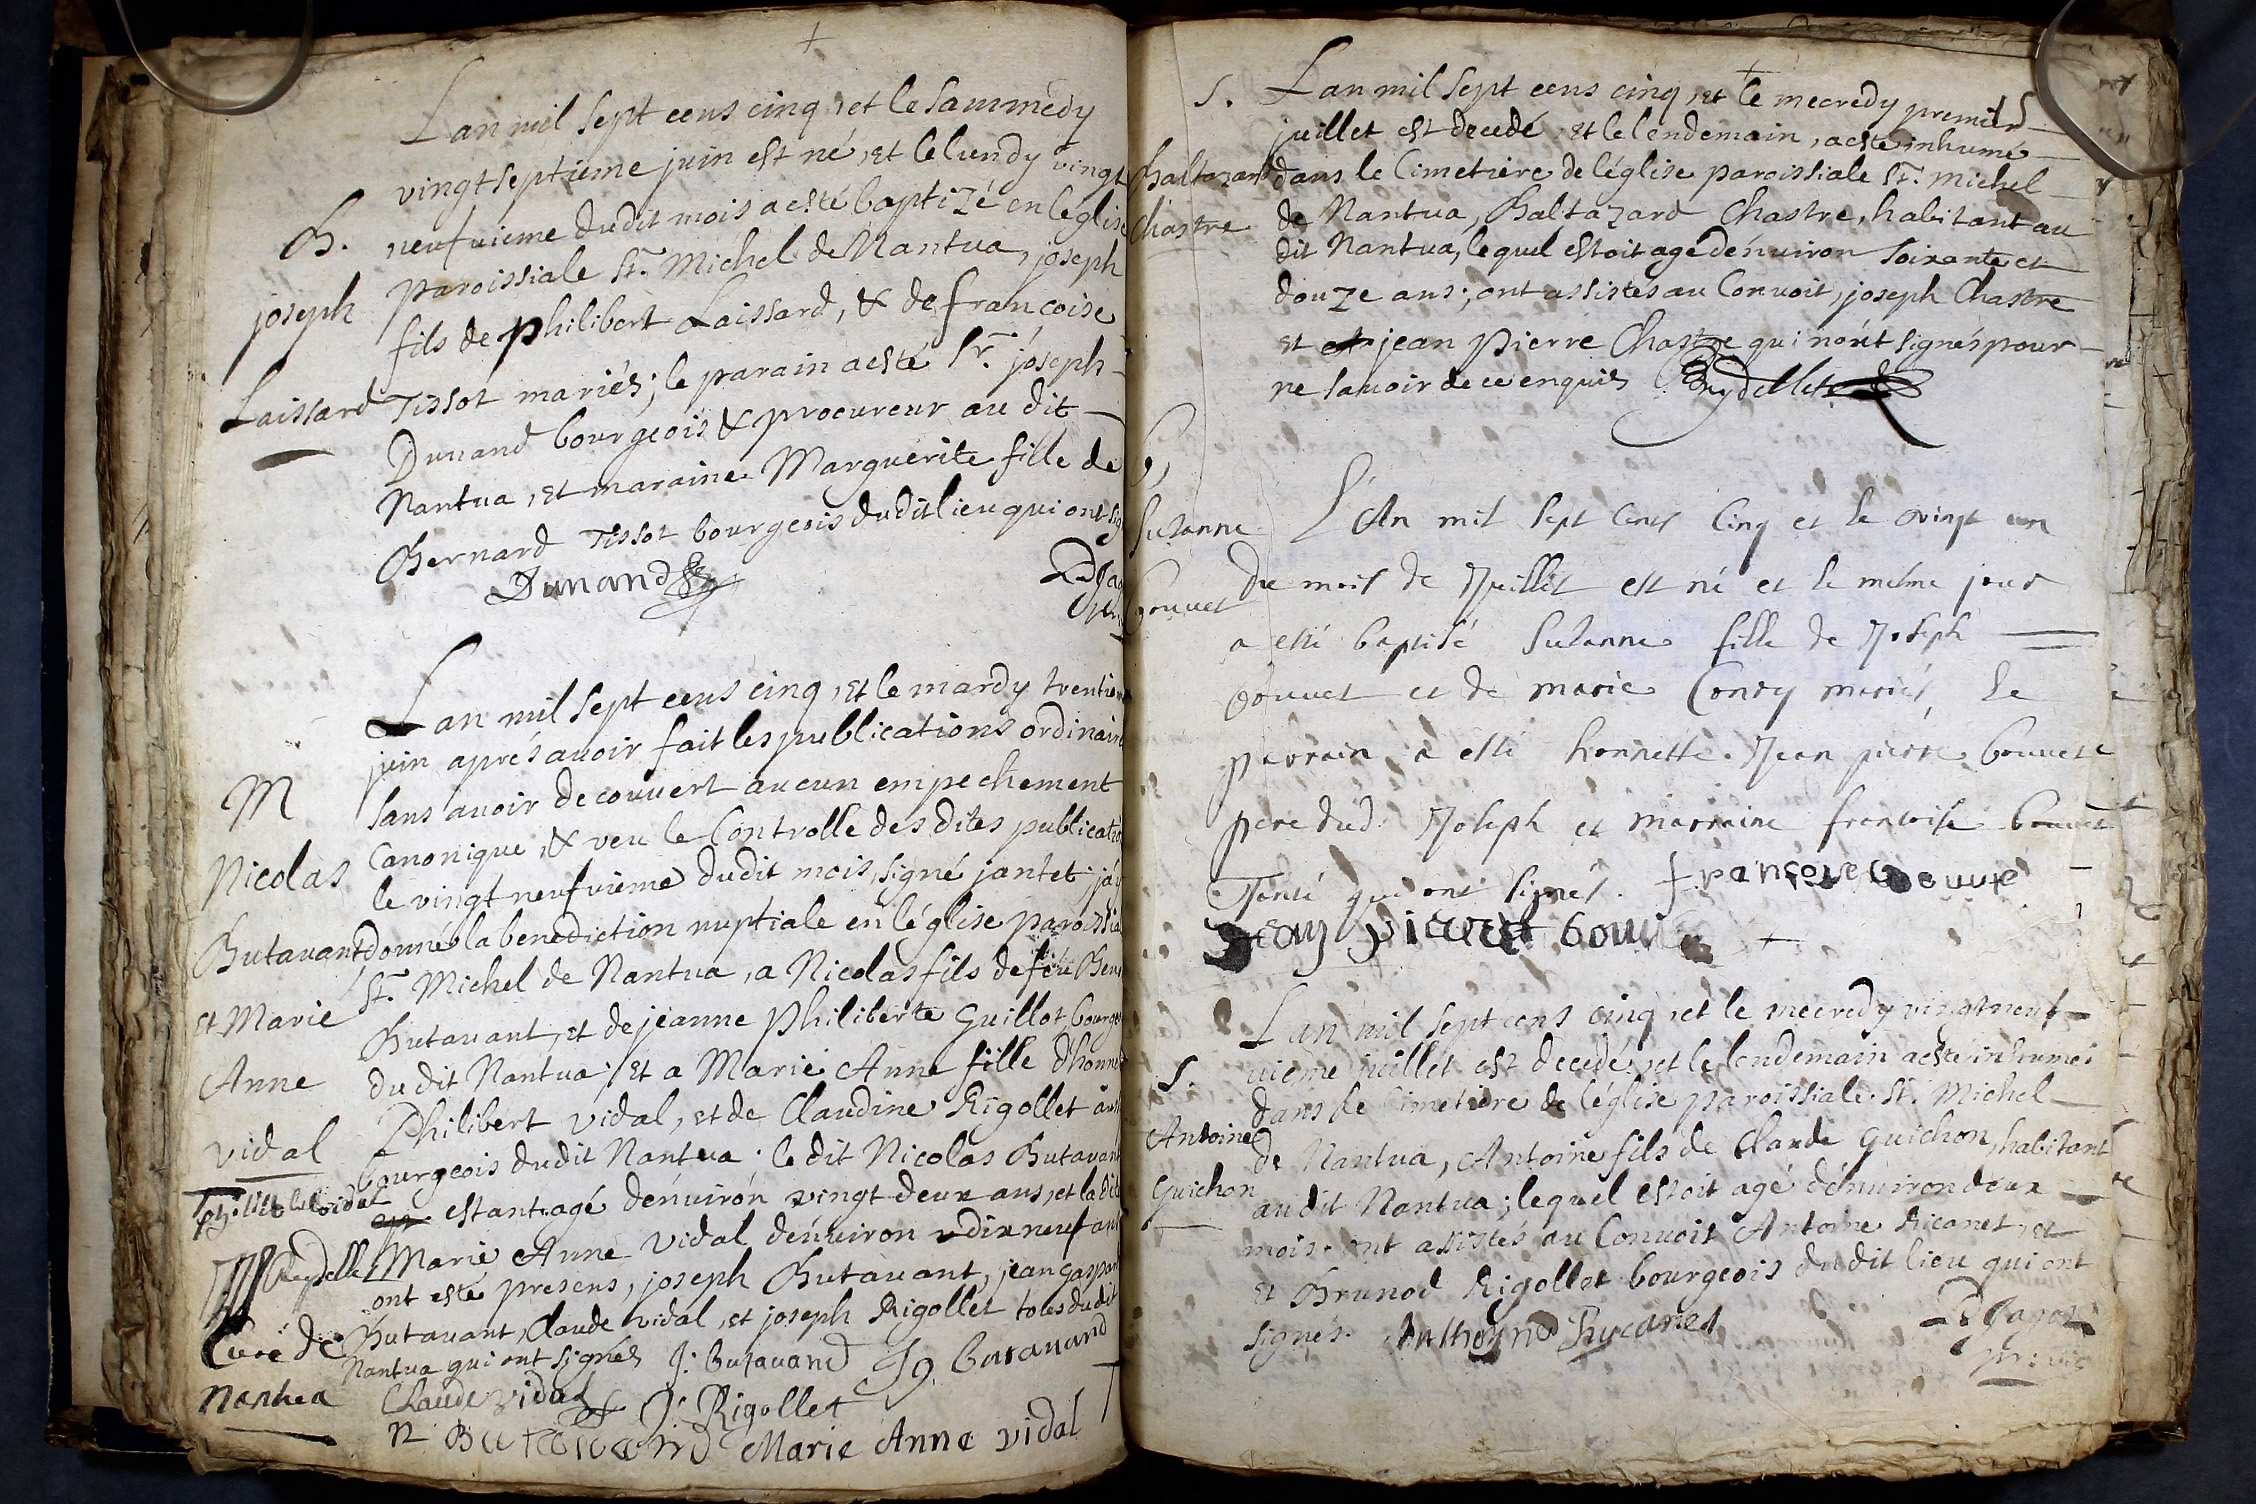 Lan mil sept cens cinq, et le sammedy
vingtseptieme juin est né, et le lundy vingt
B. neufvieme dudit mois a esté baptizé en leglise
paroissiale St. Michel de Nantua, joseph
joseph fils de philibert Laissard, & de francoise
Laissard Tissot mariés; le parain a esté Sr. joseph
Dunand bourgeois & procureur au dit
Nantua, et maraine Marguerite fille de
Bernard Tissot bourgeois dudit lieu qui ont sig
Dunand
Lan mil sept cens cinq, et le mardy trentiem
juin aprés avoir fait les publications ordinaire
M sans avoir decouvert aucun empechement
Canonique, & veu le Controlle des dites publicatio
Nicolas le vingt neufvieme dudit mois, signé jantet j'ay
Butavant donné la benediction nuptiale en l'église paroissia
St. Michel de Nantua, a Nicolas fils de feu Ben
et Marie Butavant, et de jeanne philiberte Guillot bourge
Anne du dit Nantua; Et a Marie Anne fille d'honne
Philibert vidal, et de Claudine Rigollet aussi
vidal bourgeois dudit Nantua. le dit Nicolas Butavant
estant agé d'énuirón vingt deux ans, et la dite
Marie Anne vidal d'énuiron dix neuf ans
ont esté presens, joseph Butavant, jean gaspard
Curé de Butavant, Claude vidal, et joseph Rigollet tous dudit
Nantua qui ont signés J: Butavand JG Butavand
Nantua Claude vidal J: Rigollet
N Butavand Marie Anne vidal
S. Lan mil sept cens cinq, et le mecredy premier
juillet est decedé, et le lendemain, a esté inhumé
Baltazard dans le Cimetiere de l'église paroissiale St. Michel
Chastre de Nantua, Baltazard Chastre, habitant au
dit Nantua, lequel estoit agé d'énuiron soixante et
douze ans; ont assistés au Convoit, joseph Chastre
et jean pierre Chastre qui n'ont signés pour
ne savoir de ce enquis Buydellet
b,
Suzanne L'An mil sept cents cinq et le vingt un
du mois de Juillet est né et le même jour
bouuet
a esté baptisé Suzanne fille de Joseph
bouuet et de marie Convy mariés, le
parrain a esté honnette Jean pierre bouuet
pere dud. Joseph et marraine francoise bouuet
Tante qui ont signés. francoise bouuet
Jean pierre bouuet
Lan mil sept cens cinq, et le mecredy vingtneuf
S. uieme juillet est decedé, et le lendemain a esté inhumé
dans le Cimetiere de l'église paroissiale St. Michel
Antoine de Nantua, Antoine fils de Claude guichon, habitant
Guichon au dit Nantua; lequel estoit agé d'énuiron deux
mois. ont assistés au Convoit Antoine Ricanet, et
et Brunod Rigollet bourgeois du dit lieu qui ont
signés. Anthoyne Rycanet